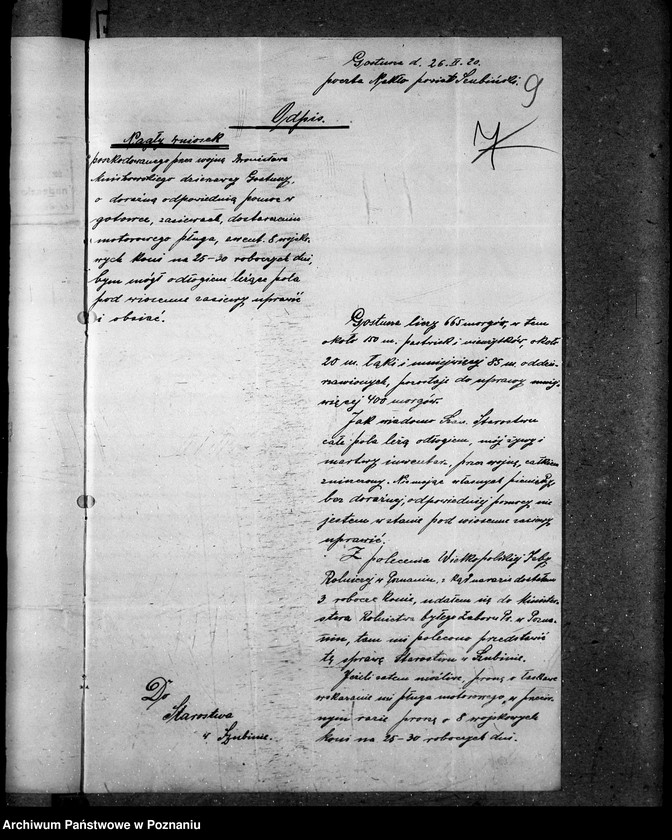 Gostusza d. 26.II.20.
poczta Nakło powiat Szubiński.
9
Odpis.
Nagły wniosek
poszkodowanego przez wojnę Bronisława
dzierżawcy Gostuszy,
o doraźną odpowiednią pomoc w
gotówce, zasiewach, dostarczeniu
motorowego pługa, ewent. 8 wojsko-
wych koni na 25-30 roboczych dni,
bym mógł odłogiem leżące pola
pod wiosenne zasiewy uprawić
i obsiać.
Gostusza liczy 665 morgów, w tem
około 150 m. pastwisk i nieużytków, około
20 m. łąki i mniejwięcej 85 m. oddzier-
żawionych, pozostaje do uprawy mniej-
więcej 400 morgów.
Jak wiadomo Szan. Starostwu
całe pola leżą odłogiem, mój żywy i
martwy inwentarz, przez wojnę, całkiem
zniszczony. Nie mając własnych pieniędzy,
bez doraźnej, odpowiedniej pomocy nie
jestem w stanie pod wiosenne zasiewy
uprawić.
Z polecenia Wielkopolskiej Izby
Rolniczej w Poznaniu, z kąd narazie dostałem
3 robocze konie, udałem się do Minister-
stwa Rolnictwa byłego Zaboru Pr. w Pozna-
niu, tam mi polecono przedstawić
tę sprawę Starostwu w Szubinie.
Jeżeli zatem możliwe, proszę o łaskawe
wskazanie mi pługa motorowego, w przeciw-
nym razie proszę o 8 wojskowych
koni na 25-30 roboczych dni.
Do
Starostwa
w Szubinie.
Archiwum Państwowe w Poznaniu